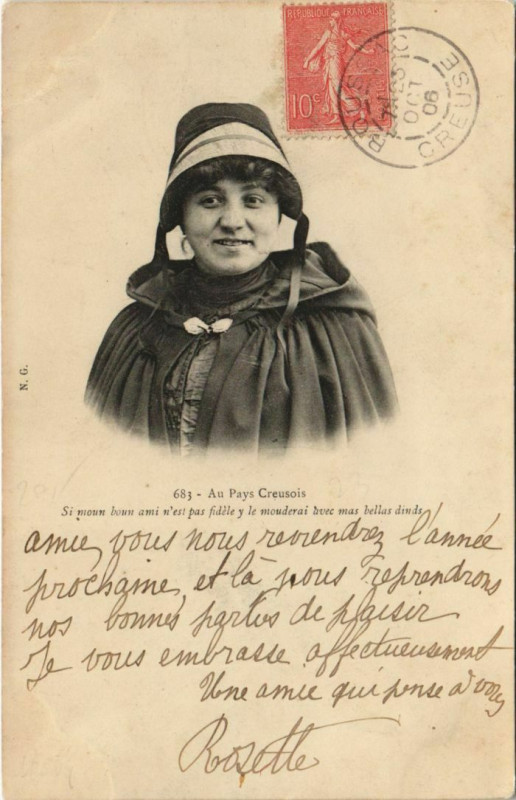 REPUBLIQUE FRANÇAISE
10c
OCT
06
CREUSE
N. G.
683 - Au Pays Creusois
Si moun boun ami n'est pas fidèle y le mouderai avec mas bellas dinds
amie, vous nous reviendrez l'année
prochaine, et là nous reprendrons
nos bonnes parties de plaisir
Je vous embrasse affectueusement
Une amie qui pense à vous
Rosette